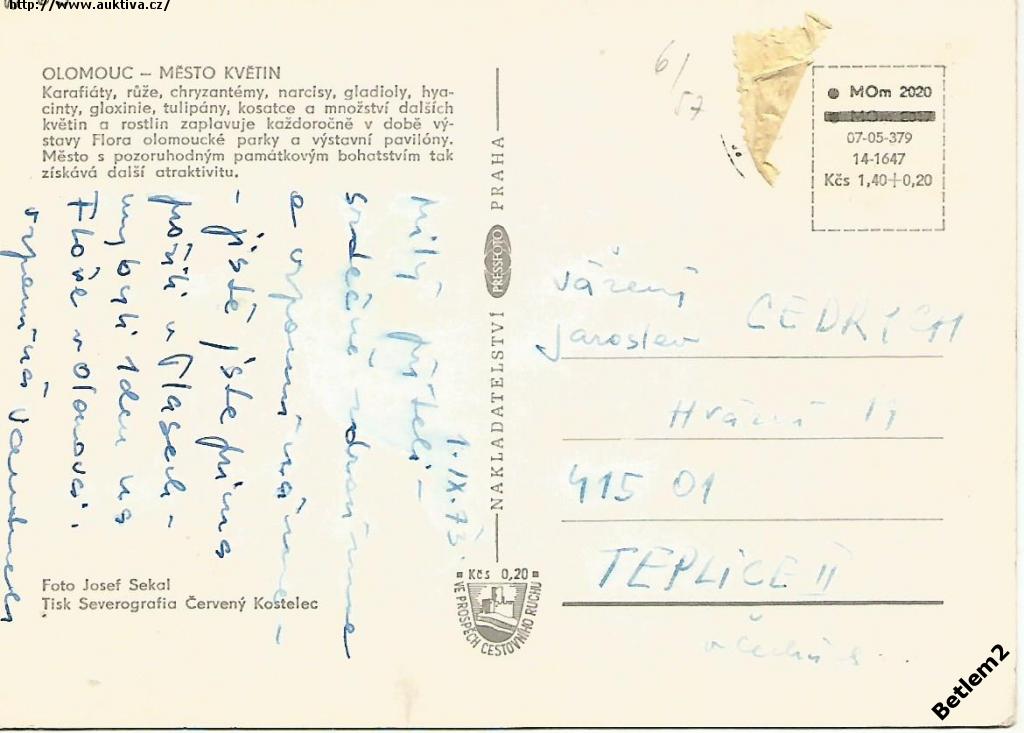 http://www.auktiva.cz/
OLOMOUC – MĚSTO KVĚTIN
Karafiáty, růže, chryzantémy, narcisy, gladioly, hya-
cinty, gloxinie, tulipány, kosatce a množství dalších
květin a rostlin zaplavuje každoročně v době vý-
stavy Flora olomoucké parky a výstavní pavilóny.
Město s pozoruhodným památkovým bohatstvím tak
získává další atraktivitu.
1.IX.73.
milý příteli –
srdečně zdravíme
a vzpomínáme –
– jistě jste prima
požili v Tlasech –
my byli 1 den na
Floře v Olomouci.
vzpomíná
Foto Josef Sekal
Tisk Severografia Červený Kostelec
NAKLADATELSTVÍ PRESSFOTO PRAHA
Kčs 0,20
VE PROSPĚCH CESTOVNÍHO RUCHU
6/57
MOm 2020
07-05-379
14-1647
Kčs 1,40+0,20
Vážený
Jaroslav CEDRYCH
Hrázní 19
415 01
TEPLICE II
v Čechách
Betlem2